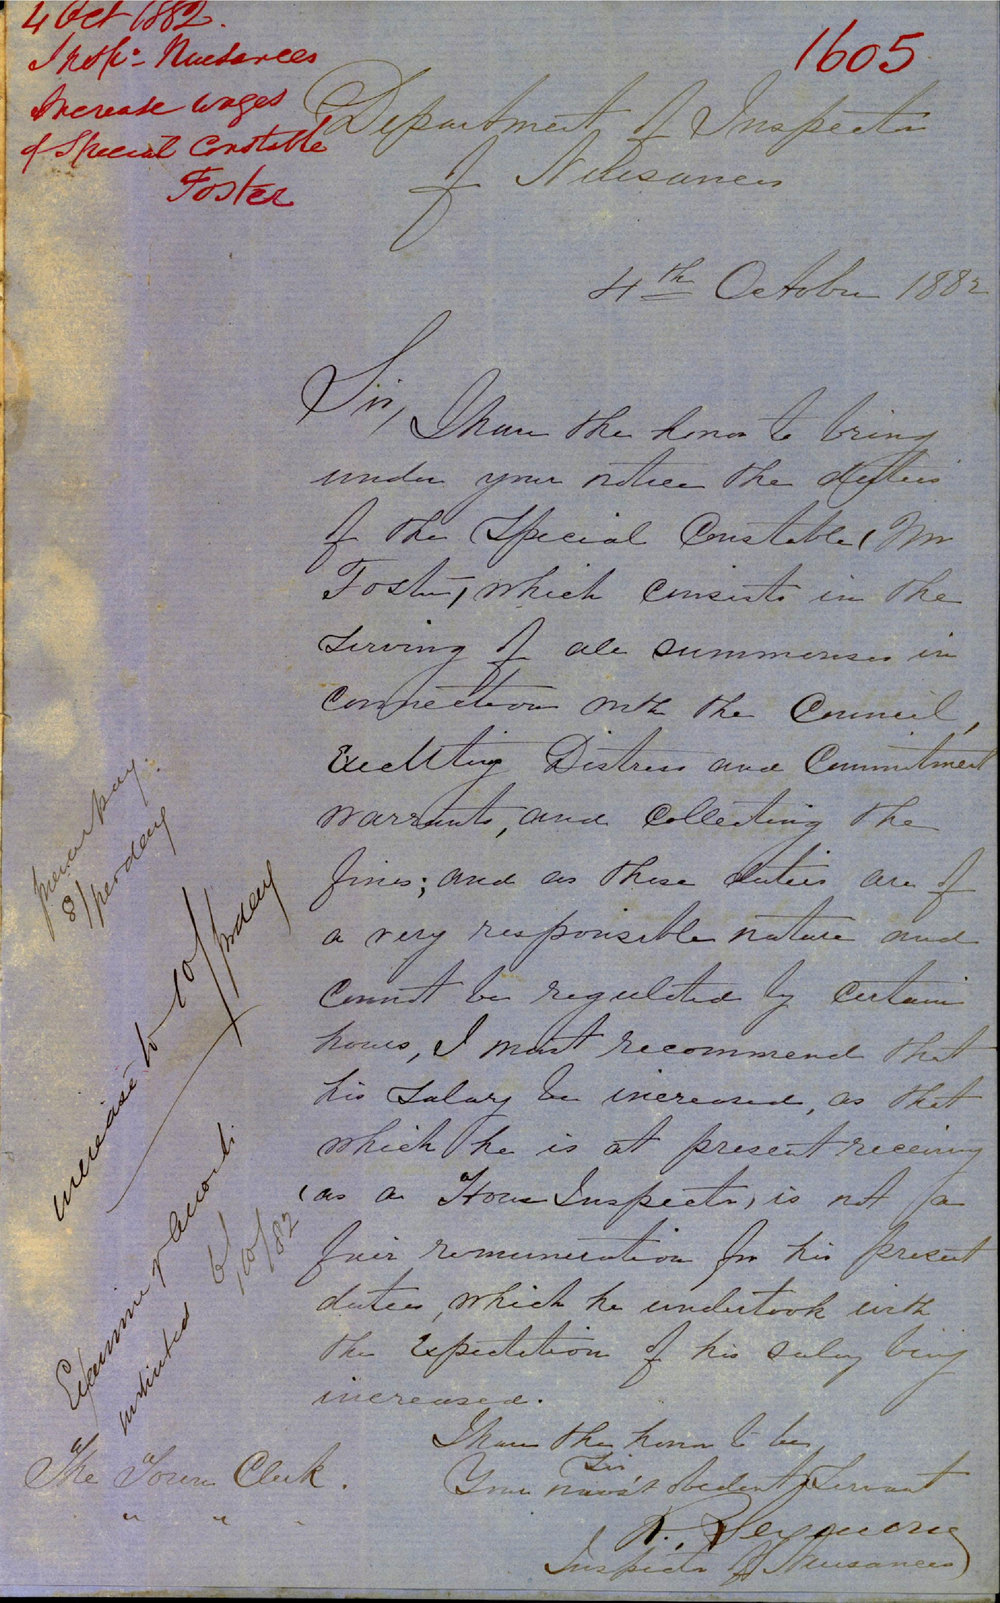 4 Oct 1882.
Inspr. Nuisances
Increase wages
of Special Constable
Foster
1605
Department of Inspector
of Nuisances
4th October 1882
Sir, I have the honor to bring
under your notice the duties
of the Special Constable (Mr
Foster), which consists in the
serving of all summonses in
connection with the Council,
Executing Distress and Commitment
warrants, and collecting the
fines; and as these duties are of
a very responsible nature and
cannot be regulated by certain
hours, I must recommend that
his salary be increased, as that
which he is at present receiving
(as a House Inspector) is not a
fair remuneration for his present
duties, which he undertook with
the expectation of his salary being
increased.
I have the honor to be
Sir
Your most obedient Servant
R. Seymour
Inspector of Nuisances
The Town Clerk.
" " "
present pay
8/ per day
increase to 10/ per day
Examiner
instructed
10/82